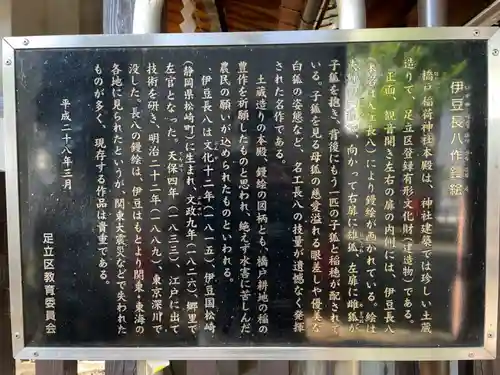 伊豆長八作鏝絵
橋戸稲荷神社本殿は、神社建築では珍しい土蔵
造りで、足立区登録有形文化財(建造物)である。
正面、観音開き左右の扉の内側には、伊豆長八
(入江長八)により鏝絵が画かれている。絵は
向かって右扉に雄狐、左扉に雌狐が
子狐を抱き、背後にもう一匹の子狐と稲穂が配されて
いる。子狐を見る母狐の慈愛溢れる眼差しや優美な
白狐の姿態など、名工長八の技量が遺憾なく発揮
された名作である。
土蔵造りの本殿、鏝絵の図柄とも、橋戸耕地の稲の
豊作を祈願したものと思われ、絶えず水害に苦しんだ
農民の願いが込められたものといわれる。
伊豆長八は文化十二年(一八一五)、伊豆国松崎
(静岡県松崎町)に生まれ、文政九年(一八二六)郷里で
左官となった。天保四年(一八三三)、江戸に出て
技術を研き、明治二十二年(一八八九)、東京深川で
没した。長八の鏝絵は、伊豆はもとより関東・東海の
各地に見られたというが、関東大震災などで失われた
ものが多く、現存する作品は貴重である。
平成二十八年三月
足立区教育委員会